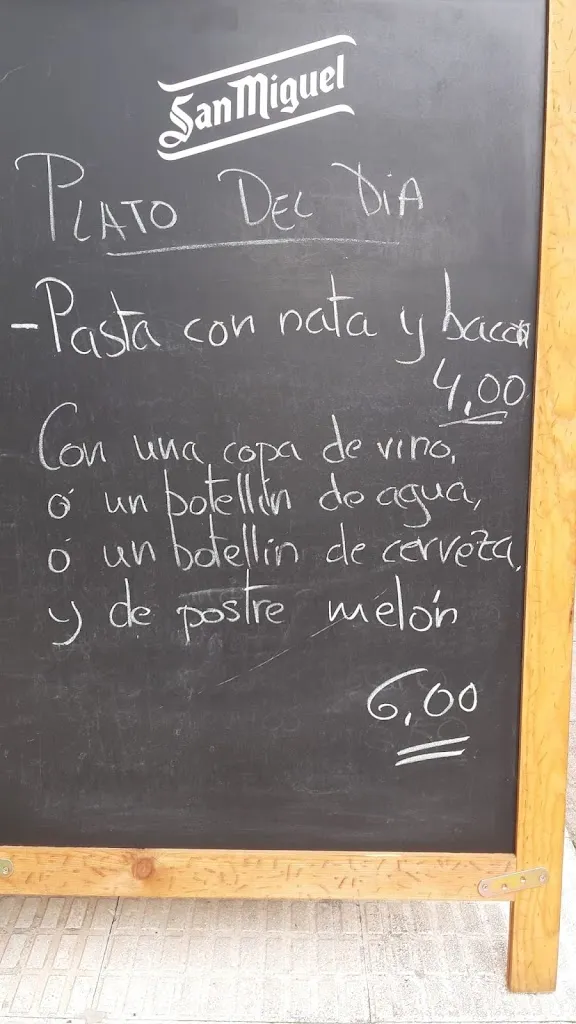 San Miguel
PLATO DEL DIA
- Pasta con nata y bacon
4,00
Con una copa de vino,
ó un botellín de agua,
ó un botellin de cerveza,
y de postre melón
6,00